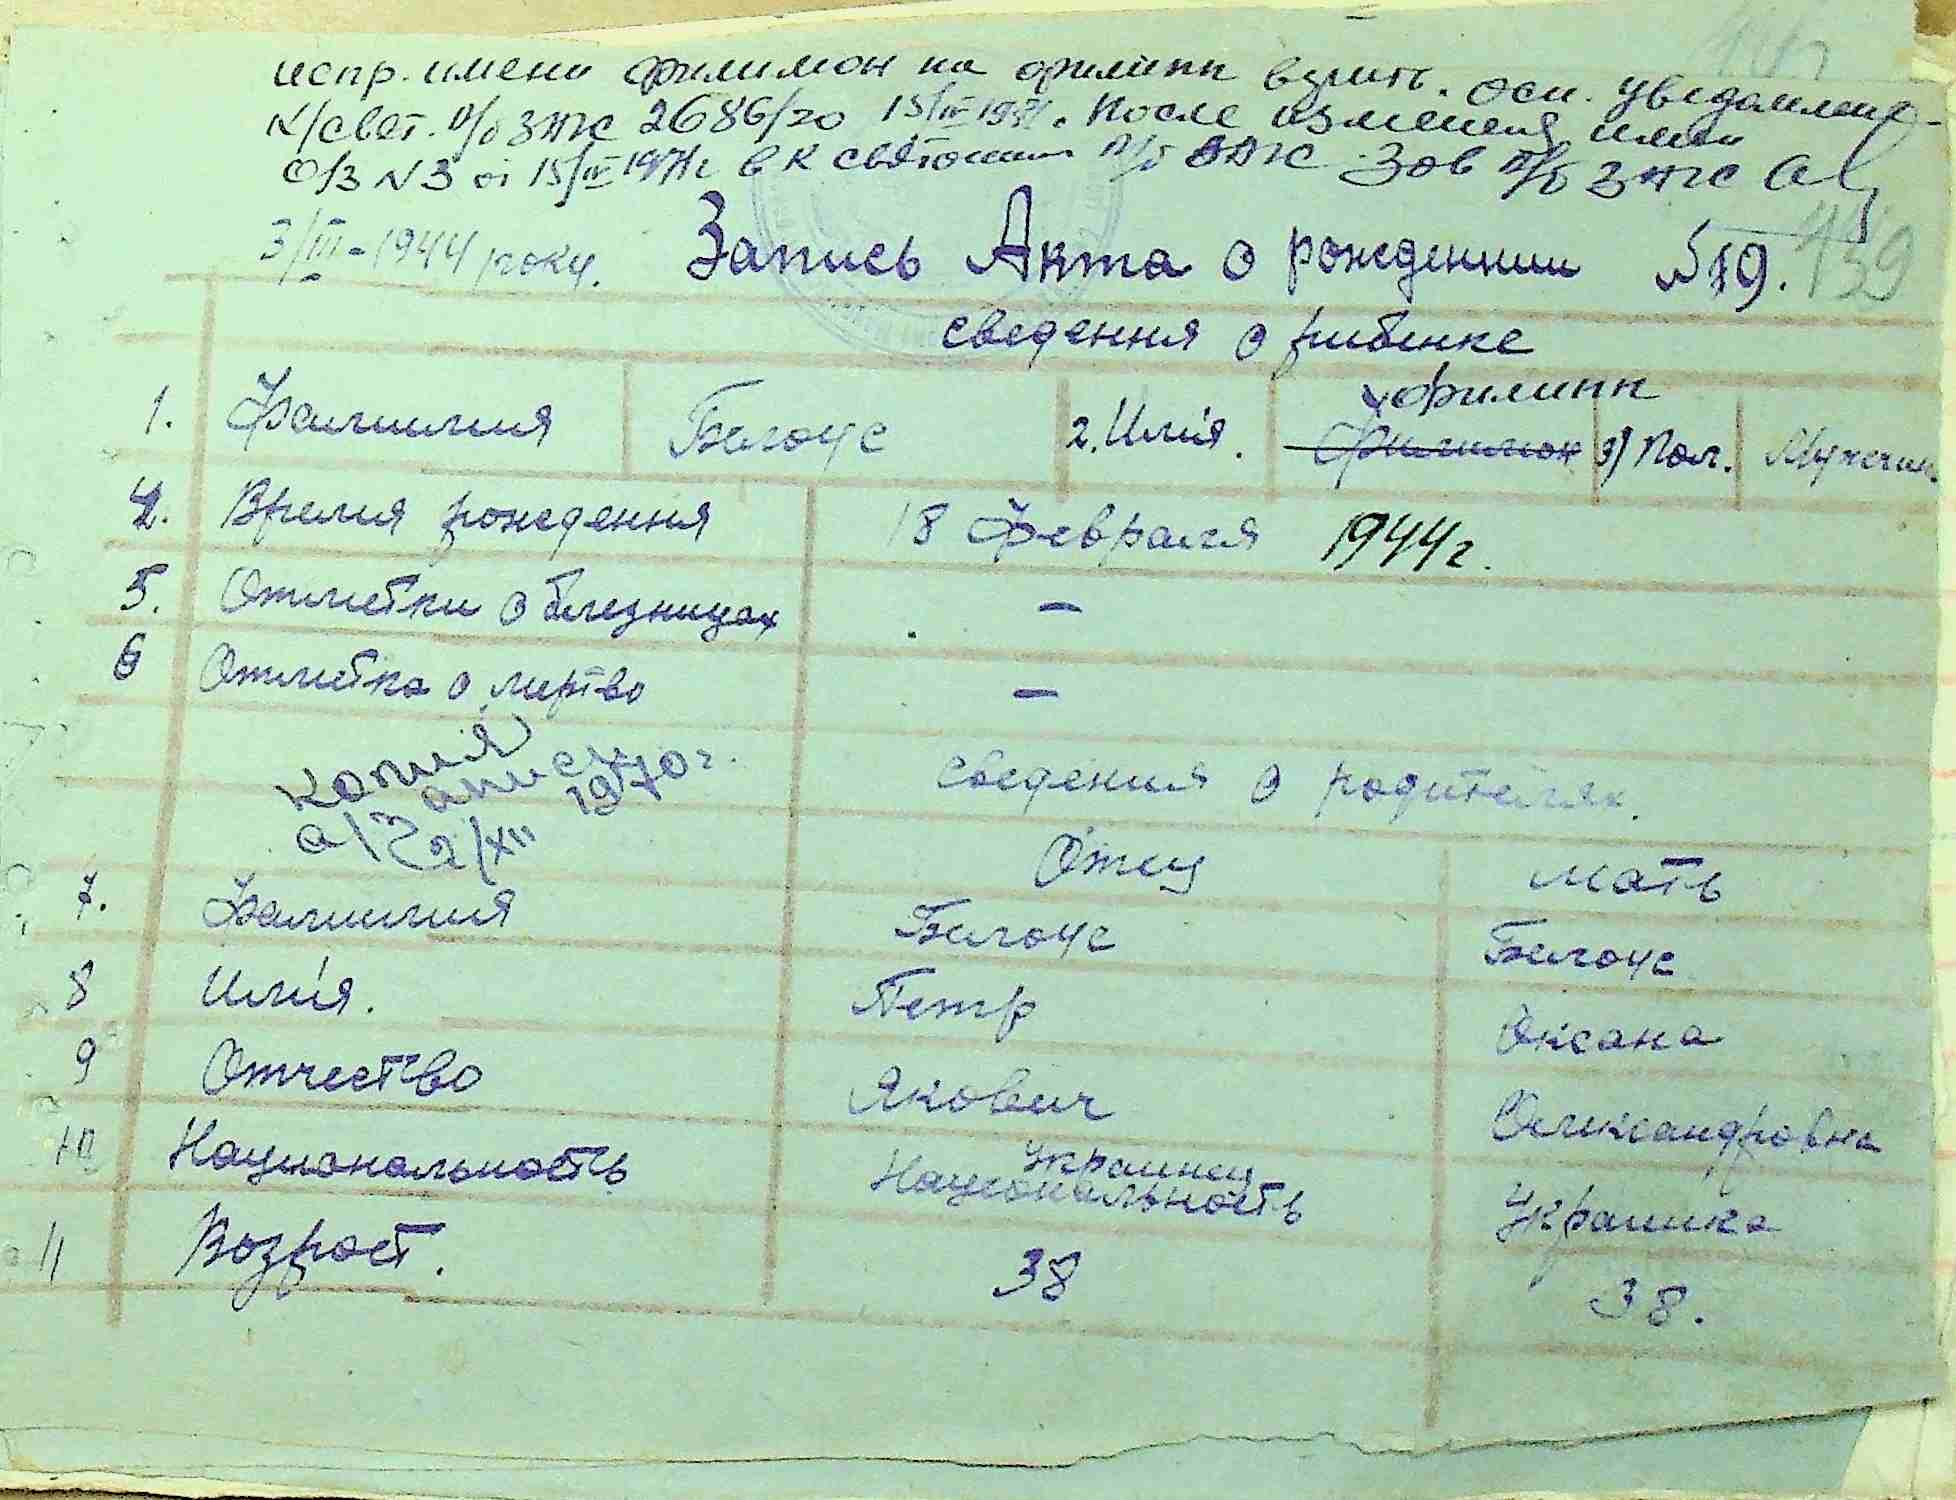 испр. имени Филимон на Филипп взмест. осн. уведомлене-
N/свет. п/б ЗАГС 2686/20 15/IV 1971. После изменея имен
О/З N3 от 15/IV 1971г в к п/б ЗАГС Зав п/б ЗАГС
3/III-1944 року. Запись Акта о рождении №19. 139
сведення о рибенке
Филипп
1. Фамилия Билоус 2. Имія. Филимон 3) Пол. Мужчин.
4. Время рождення 18 Февраля 1944г.
5. Отметки о близницах –
6 Отметка о мертво –
копия
а/записи
2/XII 1970г.
сведения о родителях.
Отец мать
7. Фамилия Билоус Билоус
8 Имія. Петр Оксана
9 Отчество Якович Олександровна
Украинец
10 Национальность Национальность Украинка
11 Возрост. 38 38.